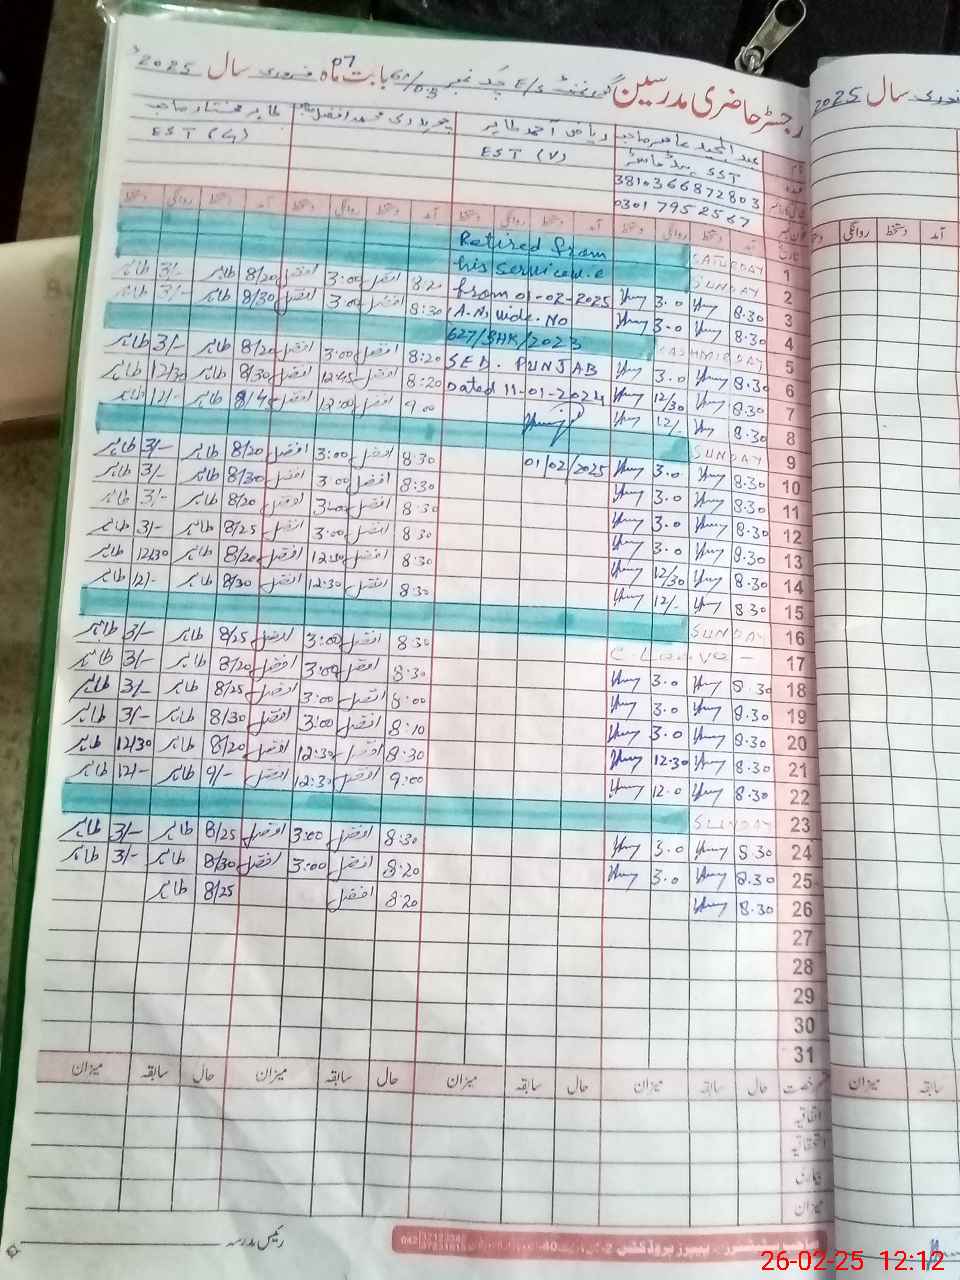 رجسٹر حاضری مدرسین گورنمنٹ E/S چک نمبر 61/D.B بابت ماہ فروری سال 2025
07
سال 2025
نام عبدالمجید عامر صاحب ریاض احمد طاہر چوہدری محمد افضل صاحب طاہر مختار صاحب
عہدہ SST ہیڈ ماسٹر EST (V) EST
3810366872803
0301 7952567
تاریخ آمد دستخط روانگی دستخط آمد دستخط روانگی دستخط آمد دستخط روانگی دستخط آمد دستخط روانگی دستخط
1 SATURDAY Retired from
2 SUNDAY his service
3 8.30 3.0 from 01-02-2025 8:20 افضل 3:00 افضل 8/20 طاہر 3/- طاہر
4 8.30 3.0 wide. No 8:30 افضل 3:00 افضل 8/30 طاہر 3/- طاہر
5 KASHMIR DAY 627/BHK/2023
6 8.30 3.0 SED. PUNJAB 8:20 افضل 3:00 افضل 8/20 طاہر 3/- طاہر
7 8.30 12/30 Dated 11-01-2024 8:20 افضل 12:45 افضل 8/30 طاہر 12/30 طاہر
8 8.30 12/- 9:00 افضل 12:00 افضل طاہر 12/- طاہر
9 SUNDAY
10 8.30 3.0 01/02/2025 8:30 افضل 3:00 افضل 8/20 طاہر 3/- طاہر
11 8.30 3.0 8:30 افضل 3:00 افضل 8/30 طاہر 3/- طاہر
12 8.30 3.0 8:30 افضل 3:00 افضل 8/20 طاہر 3/- طاہر
13 8.30 3.0 8:30 افضل 3:00 افضل 8/25 طاہر 3/- طاہر
14 8.30 12/30 8:30 افضل 12:30 افضل 8/20 طاہر 12/30 طاہر
15 8.30 12/- 8:30 افضل 12:30 افضل 8/30 طاہر 12/- طاہر
16 SUNDAY
17 C. Leave - 8:30 افضل 3:00 افضل 8/25 طاہر 3/- طاہر
18 8.30 3.0 8:30 افضل 3:00 افضل 8/20 طاہر 3/- طاہر
19 8.30 3.0 8:00 افضل 3:00 افضل 8/25 طاہر 3/- طاہر
20 8.30 3.0 8:10 افضل 3:00 افضل 8/30 طاہر 3/- طاہر
21 8.30 12.30 8:30 افضل 12:30 افضل 8/20 طاہر 12/30 طاہر
22 8.30 12.0 9:00 افضل 12:30 افضل 9/- طاہر 12/- طاہر
23 SUNDAY
24 8.30 3.0 8:30 افضل 3:00 افضل 8/25 طاہر 3/- طاہر
25 8.30 3.0 8:20 افضل 3:00 افضل 8/30 طاہر 3/- طاہر
26 8.30 8:20 افضل 8/25 طاہر
27
28
29
30
31
رخصت حال سابقہ میزان حال سابقہ میزان حال سابقہ میزان حال سابقہ میزان
اتفاقیہ
استحقاقیہ
بیماری
میزان
رئیس مدرسہ
26-02-25 12:12